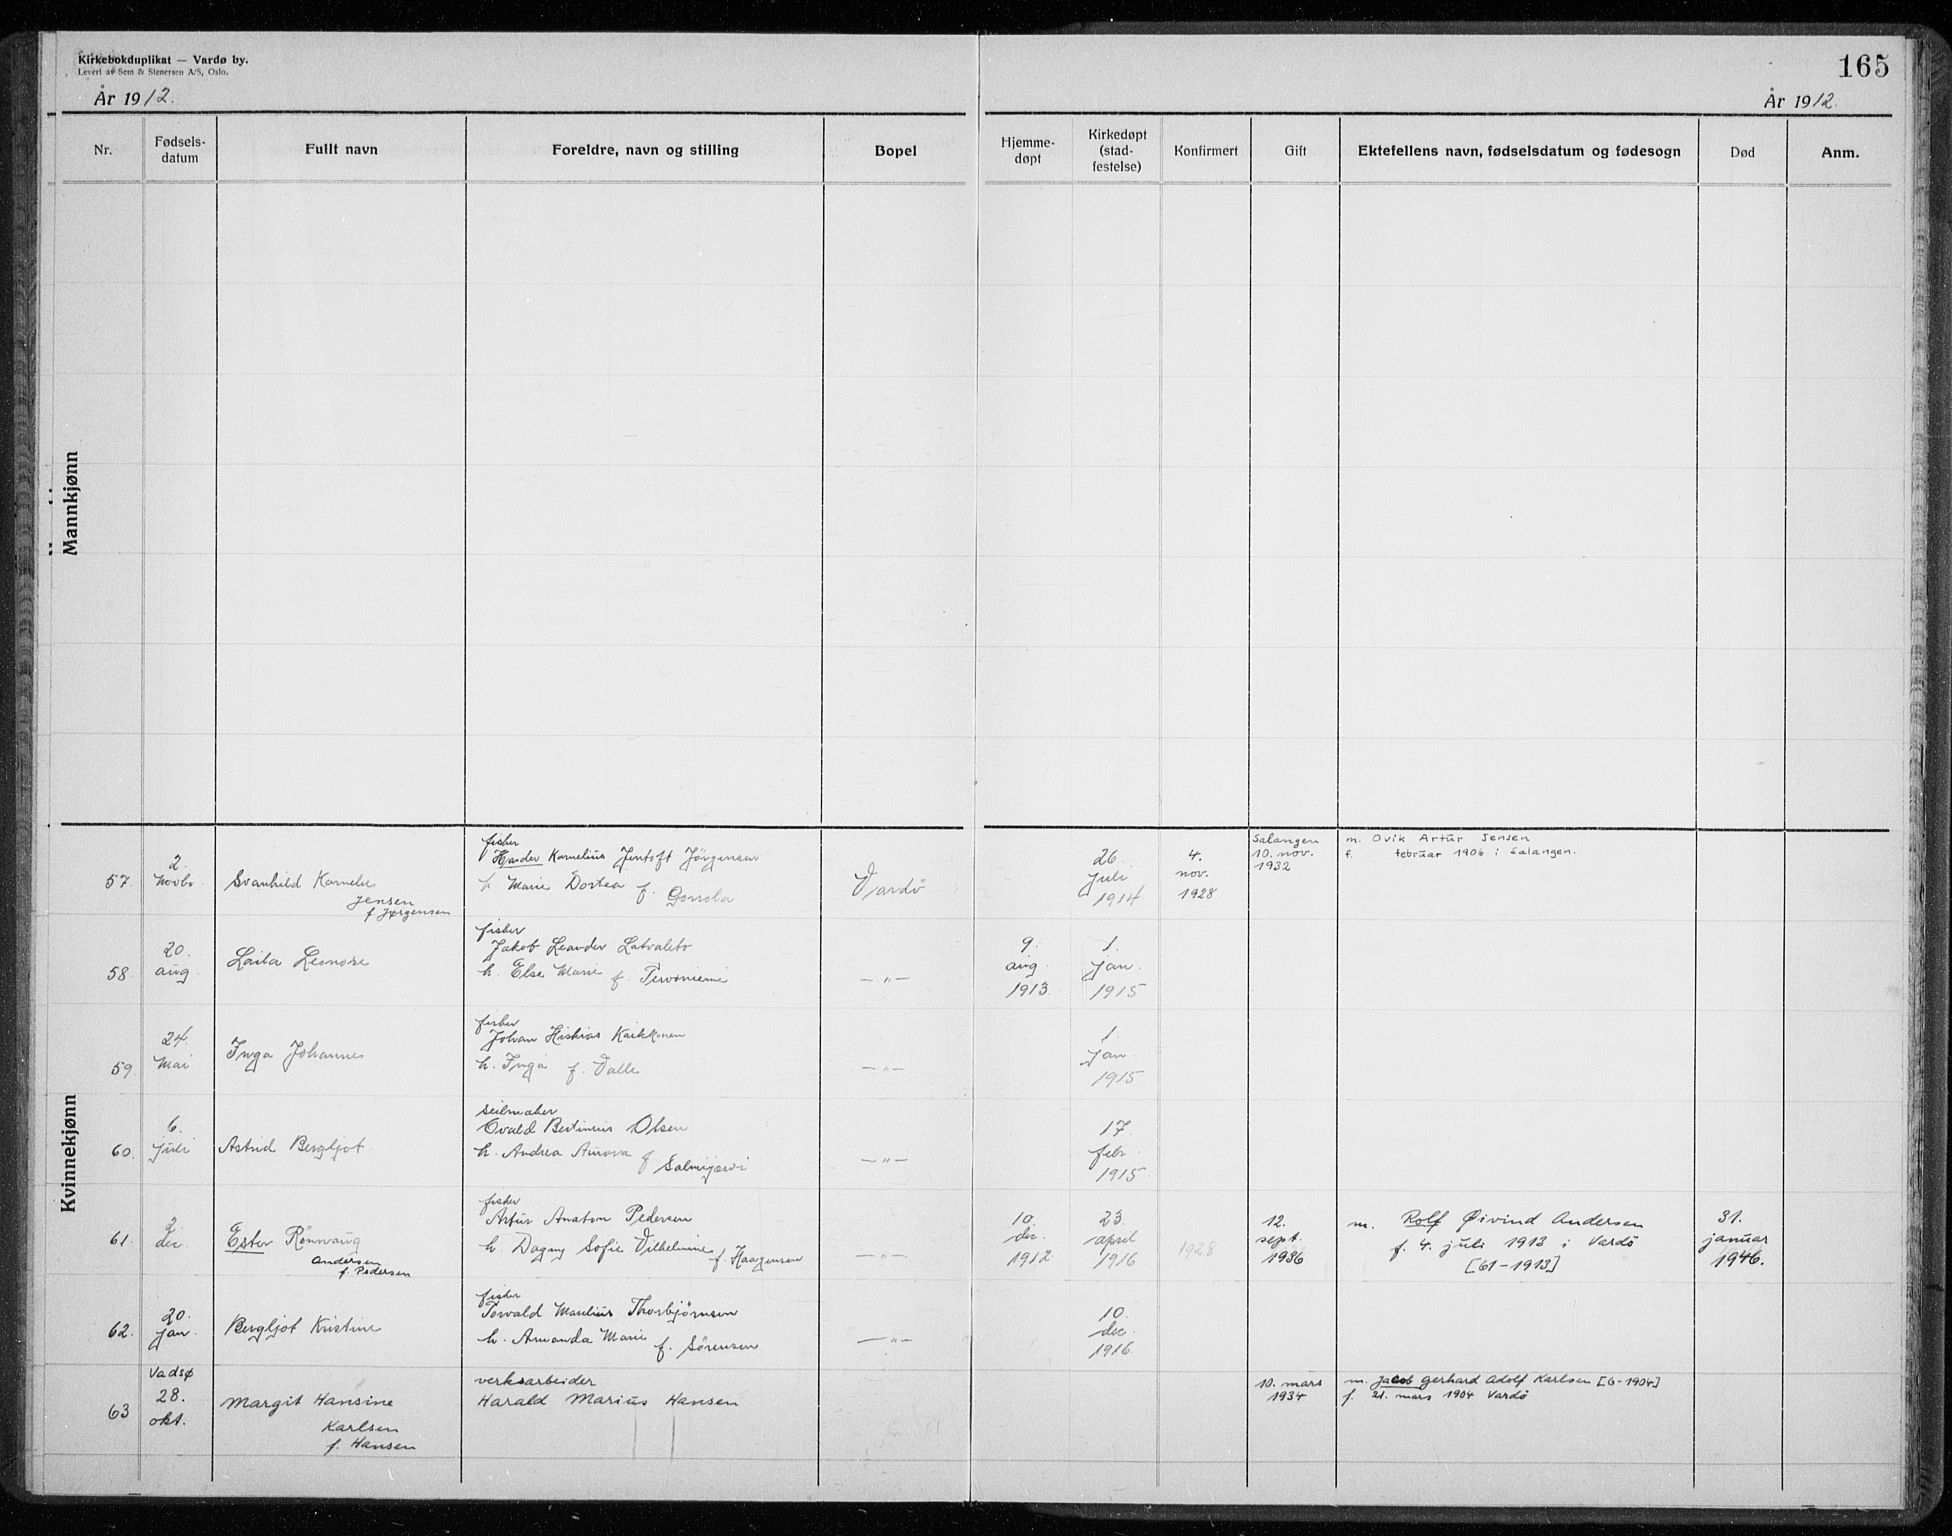 Kirkebokduplikat — Vardø by.
Levert av Sem & Stenersen A/S, Oslo.
165
År 1912.
År 1912.
Nr.
Fødsels-
datum
Fullt navn
Foreldre, navn og stilling
Bopel
Hjemme-
døpt
Kirkedøpt
(stad-
festelse)
Konfirmert
Gift
Ektefellens navn, fødselsdatum og fødesogn
Død
Anm.
Mannkjønn
Kvinnekjønn
57.
2.
Novbr.
Svanhild Kornelie
Jensen
f. Jørgensen
fisker
Kornelius Jentoft Jörgensen
h. Marie Dortea f.
Vardö
26.
juli
1914
4.
nov.
1928
Salangen
10. nov.
1932
m. Ovik Artur Jensen
f. februar 1906 i Salangen.
58.
20.
aug.
Laila Leonore
fisker
Jakob Leander
h. Else Marie f. Pervoniemi
— " —
9.
aug.
1913.
1.
jan.
1915
59
24.
Mai
Inga Johannes
fisker
Johan Hiskias Karkkonen
h. Inga f. Valle
— " —
1.
jan.
1915
60.
6.
juli
Astrid Bergljot
seilmaker
Evald Bertinius Olsen
h. Andrea Aurora f. Salmijærvi
— " —
17.
febr.
1915
61.
2.
dec.
Ester Rönnaug
Andersen
f. Pedersen
fisker
Artur Anaton Pedersen
h. Dagny Sofie Vilhelmine f. Haagensen
— " —
10.
dec.
1912
23.
april
1916
1928
12.
sept.
1936
m. Rolf Øivind Andersen
f. 4. juli 1913 i Vardö
[61-1913]
31.
januar
1946.
62.
20.
jan.
Bergljot Kristine
fisker
Torvald Maulius Thorbjørnsen
h. Amanda Marie f. Sørensen
— " —
10.
dec.
1916.
63
Vadsø
28.
okt.
Margit Hansine
Karlsen
f. Hansen
verksarbeider
Harald Marius Hansen
10. mars
1934
m. Jacob Gerhard Adolf Karlsen [6-1904]
f. 21. mars 1904 Vardö